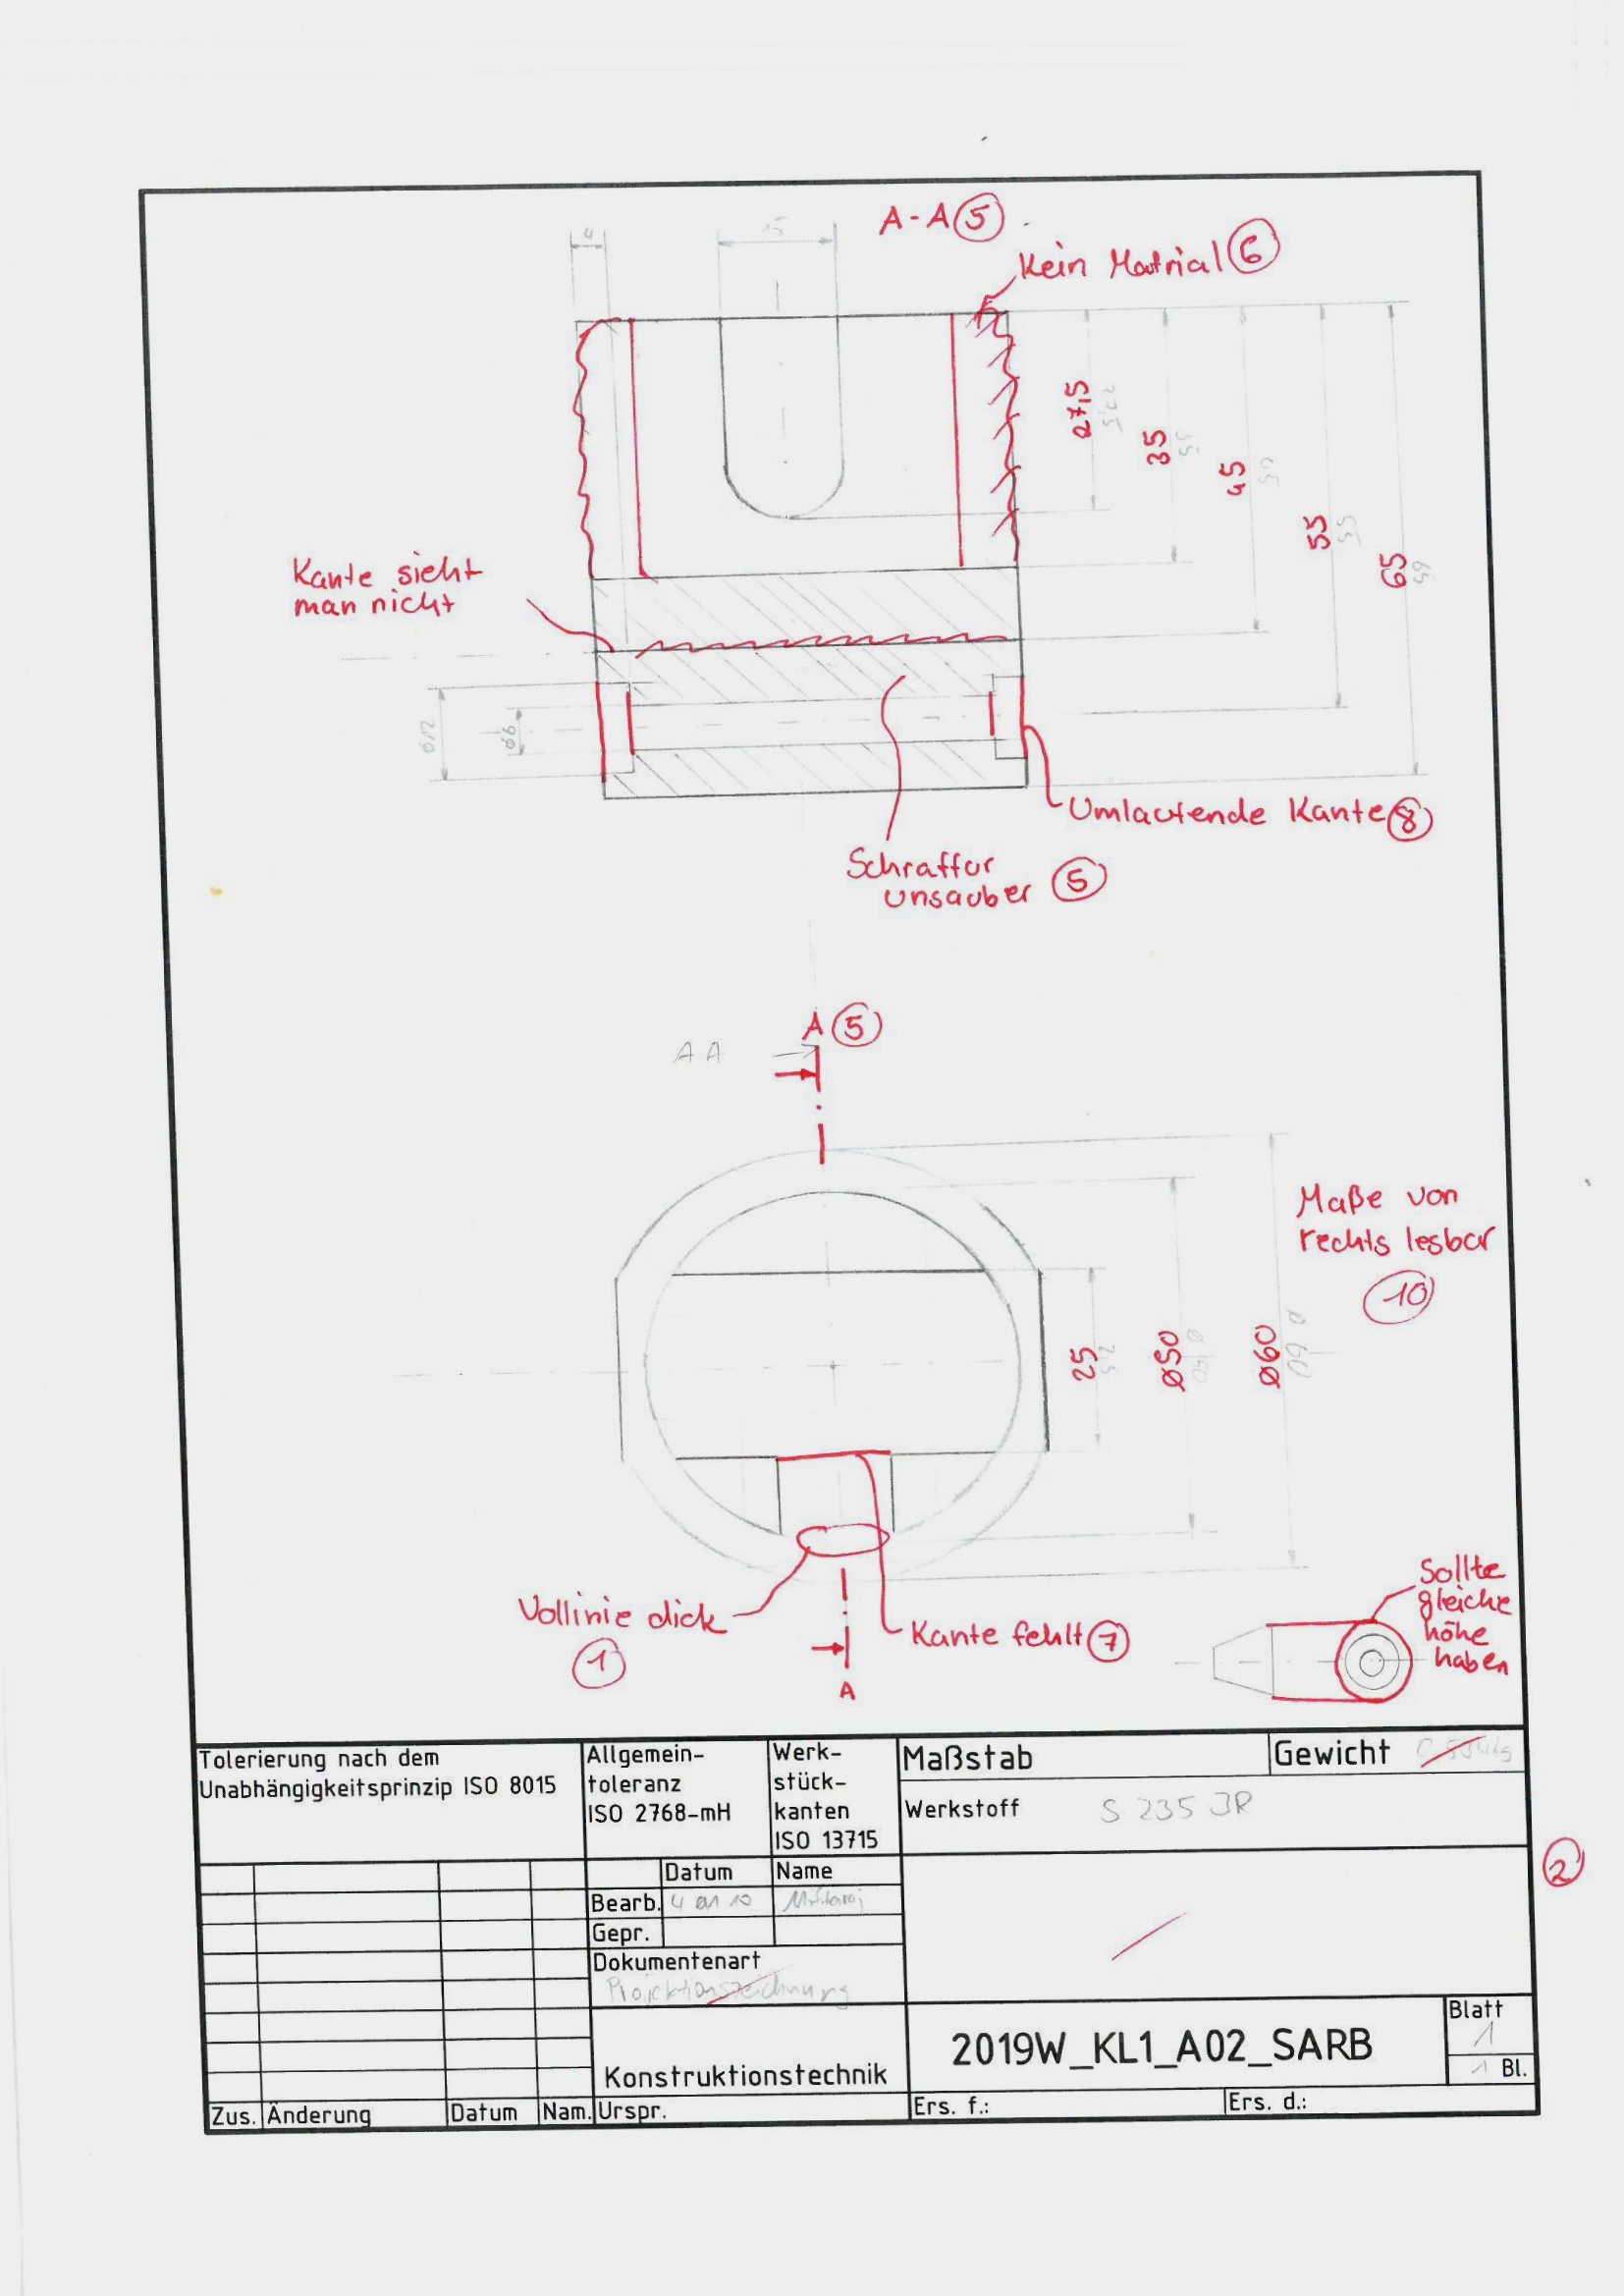 A-A 5
4
15
Kein Matrial 6
27,5
27,5
35
35
45
55
55
65
Kante sieht
man nicht
ø12
ø6
Umlaufende Kante 8
Schraffur
unsauber 5
A 5
A A
Maße von
rechts lesbar
10
25
25
ø50
ø50
ø60
ø 60
Vollinie dick
1
Kante fehlt 7
A
Sollte
gleiche
höhe
haben
Tolerierung nach dem
Unabhängigkeitsprinzip ISO 8015
Allgemein-
toleranz
ISO 2768-mH
Werk-
stück-
kanten
ISO 13715
Maßstab
Gewicht
Werkstoff S 235 JR
2
Datum Name
Bearb.
Gepr.
Dokumentenart
Projektionszeichnung
Konstruktionstechnik
2019W_KL1_A02_SARB
Blatt
1
1 Bl.
Zus. Änderung Datum Nam. Urspr. Ers. f.: Ers. d.: